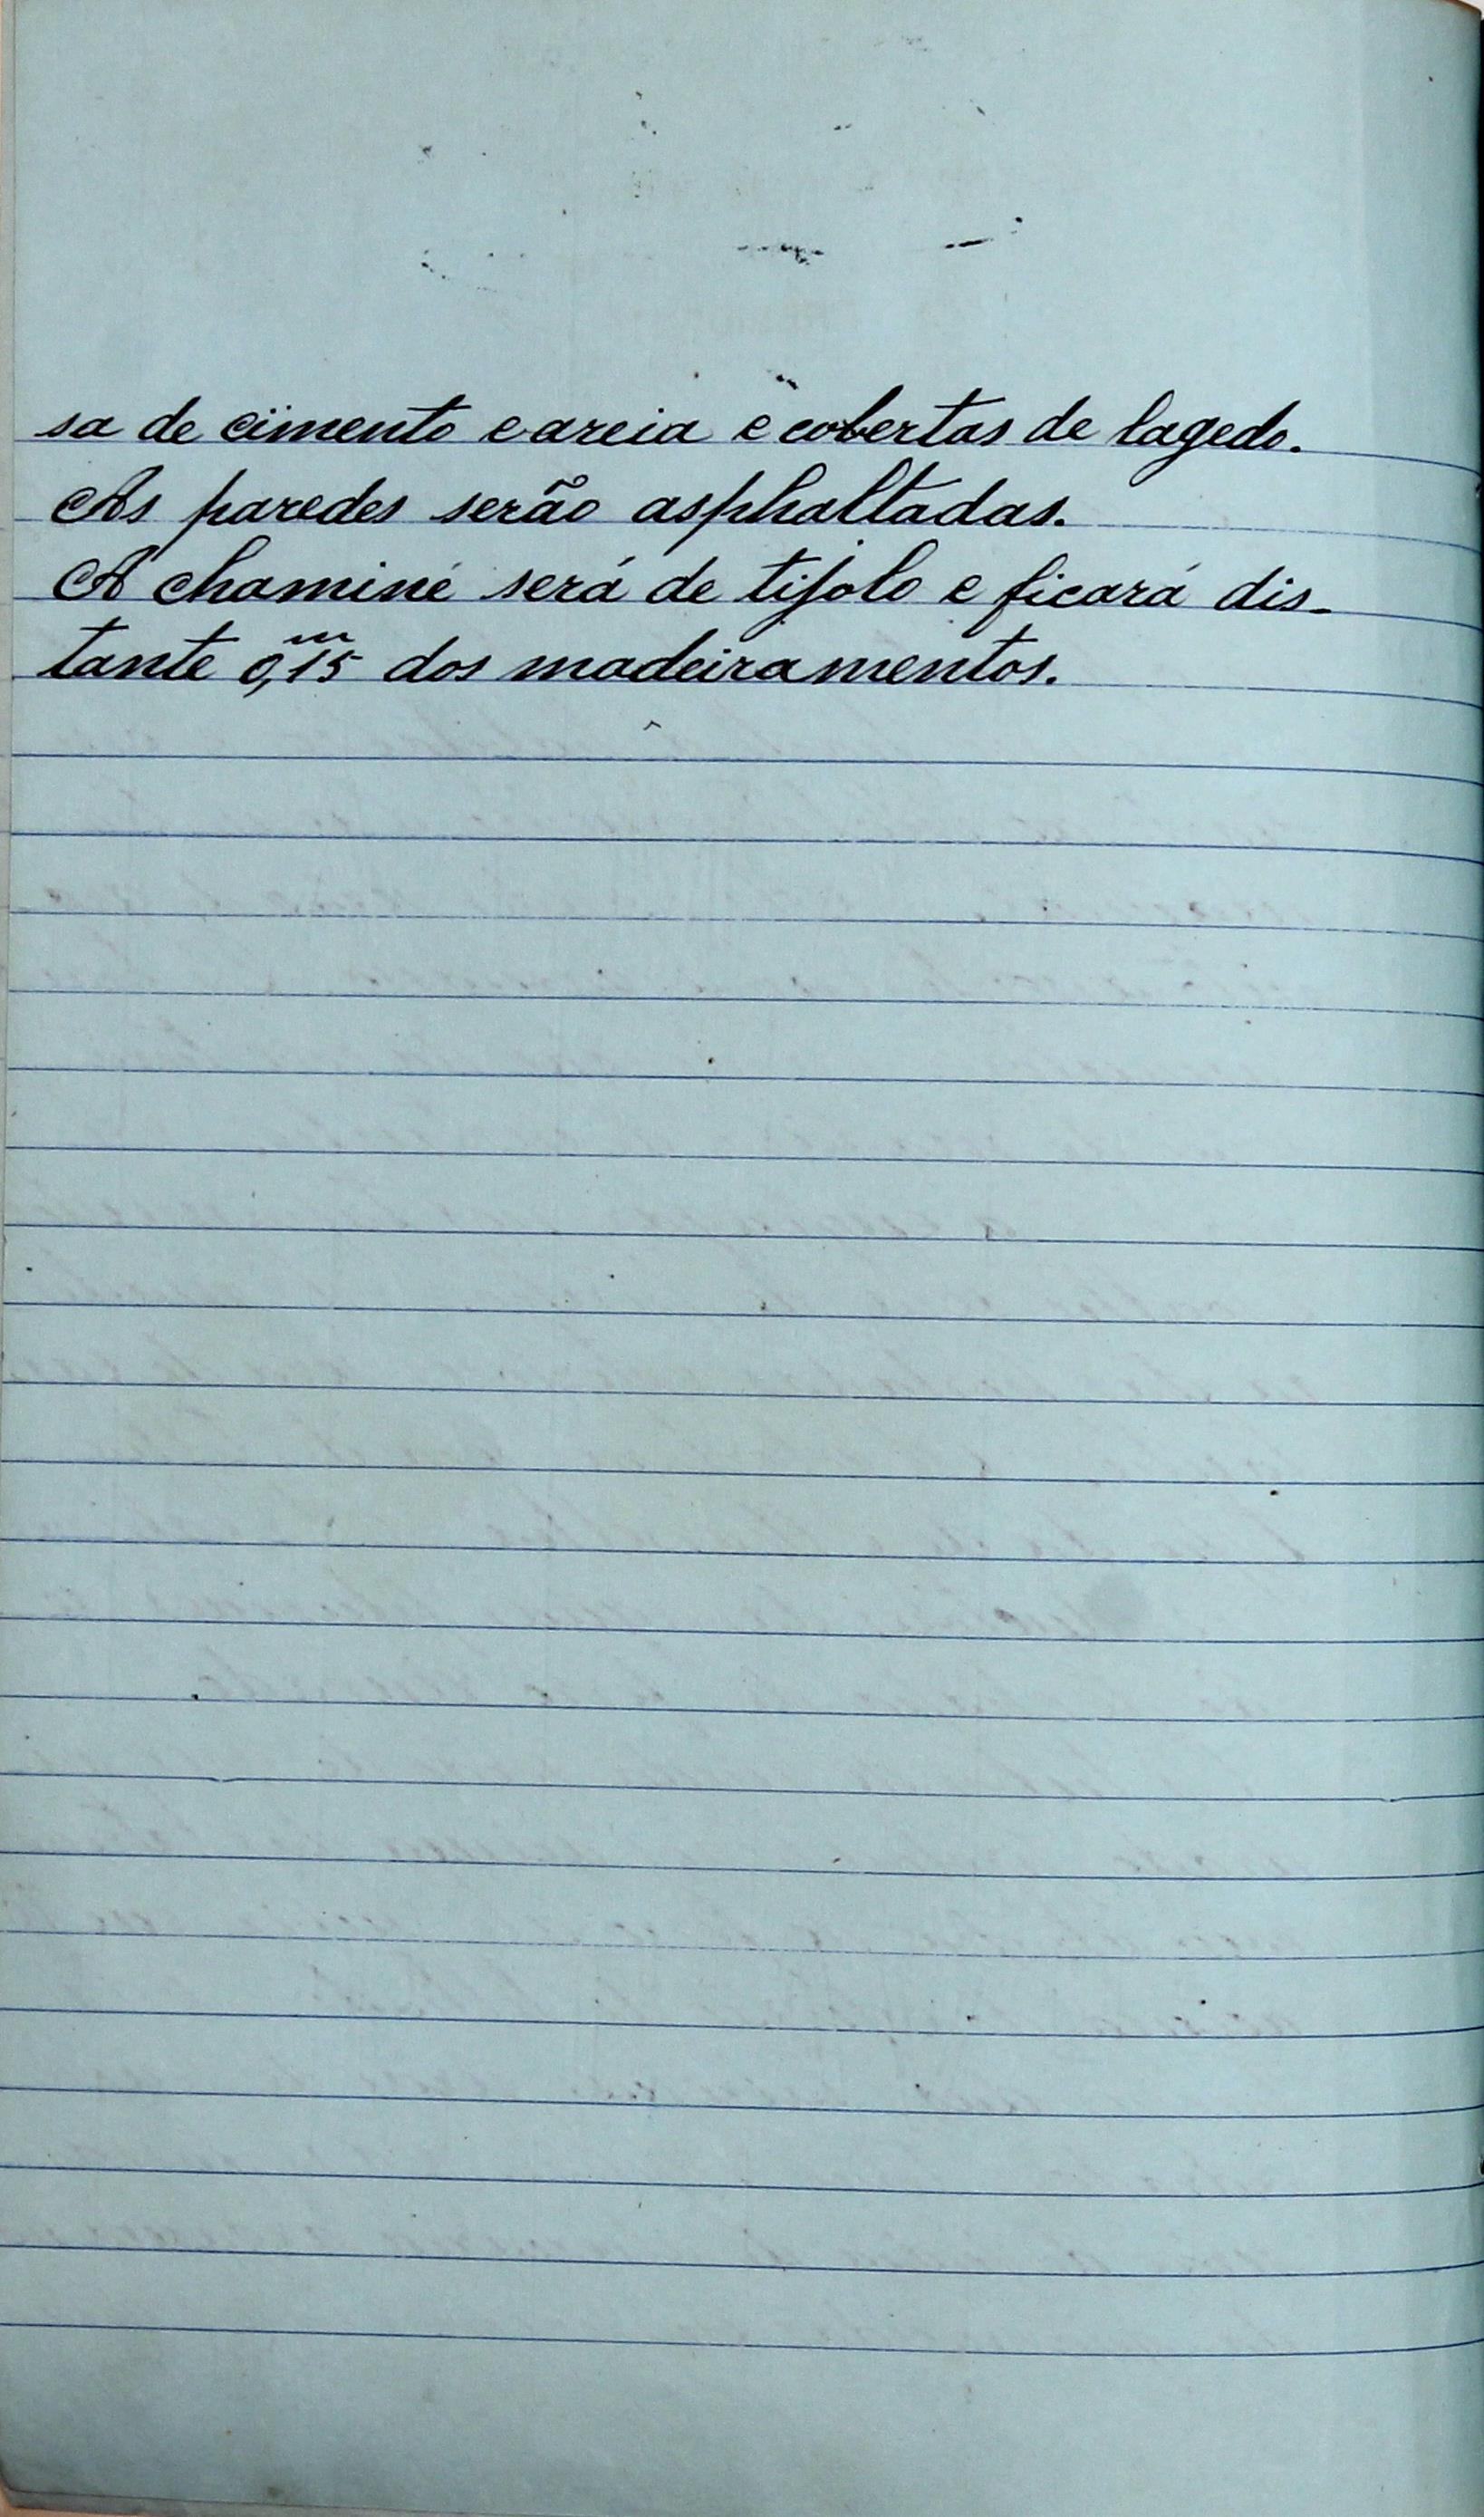 sa de cimento e areia e cobertas de lagedo.
As paredes serão asphaltadas.
A chaminé será de tijolo e ficará dis-
tante 0,ᵐ15 dos madeiramentos.